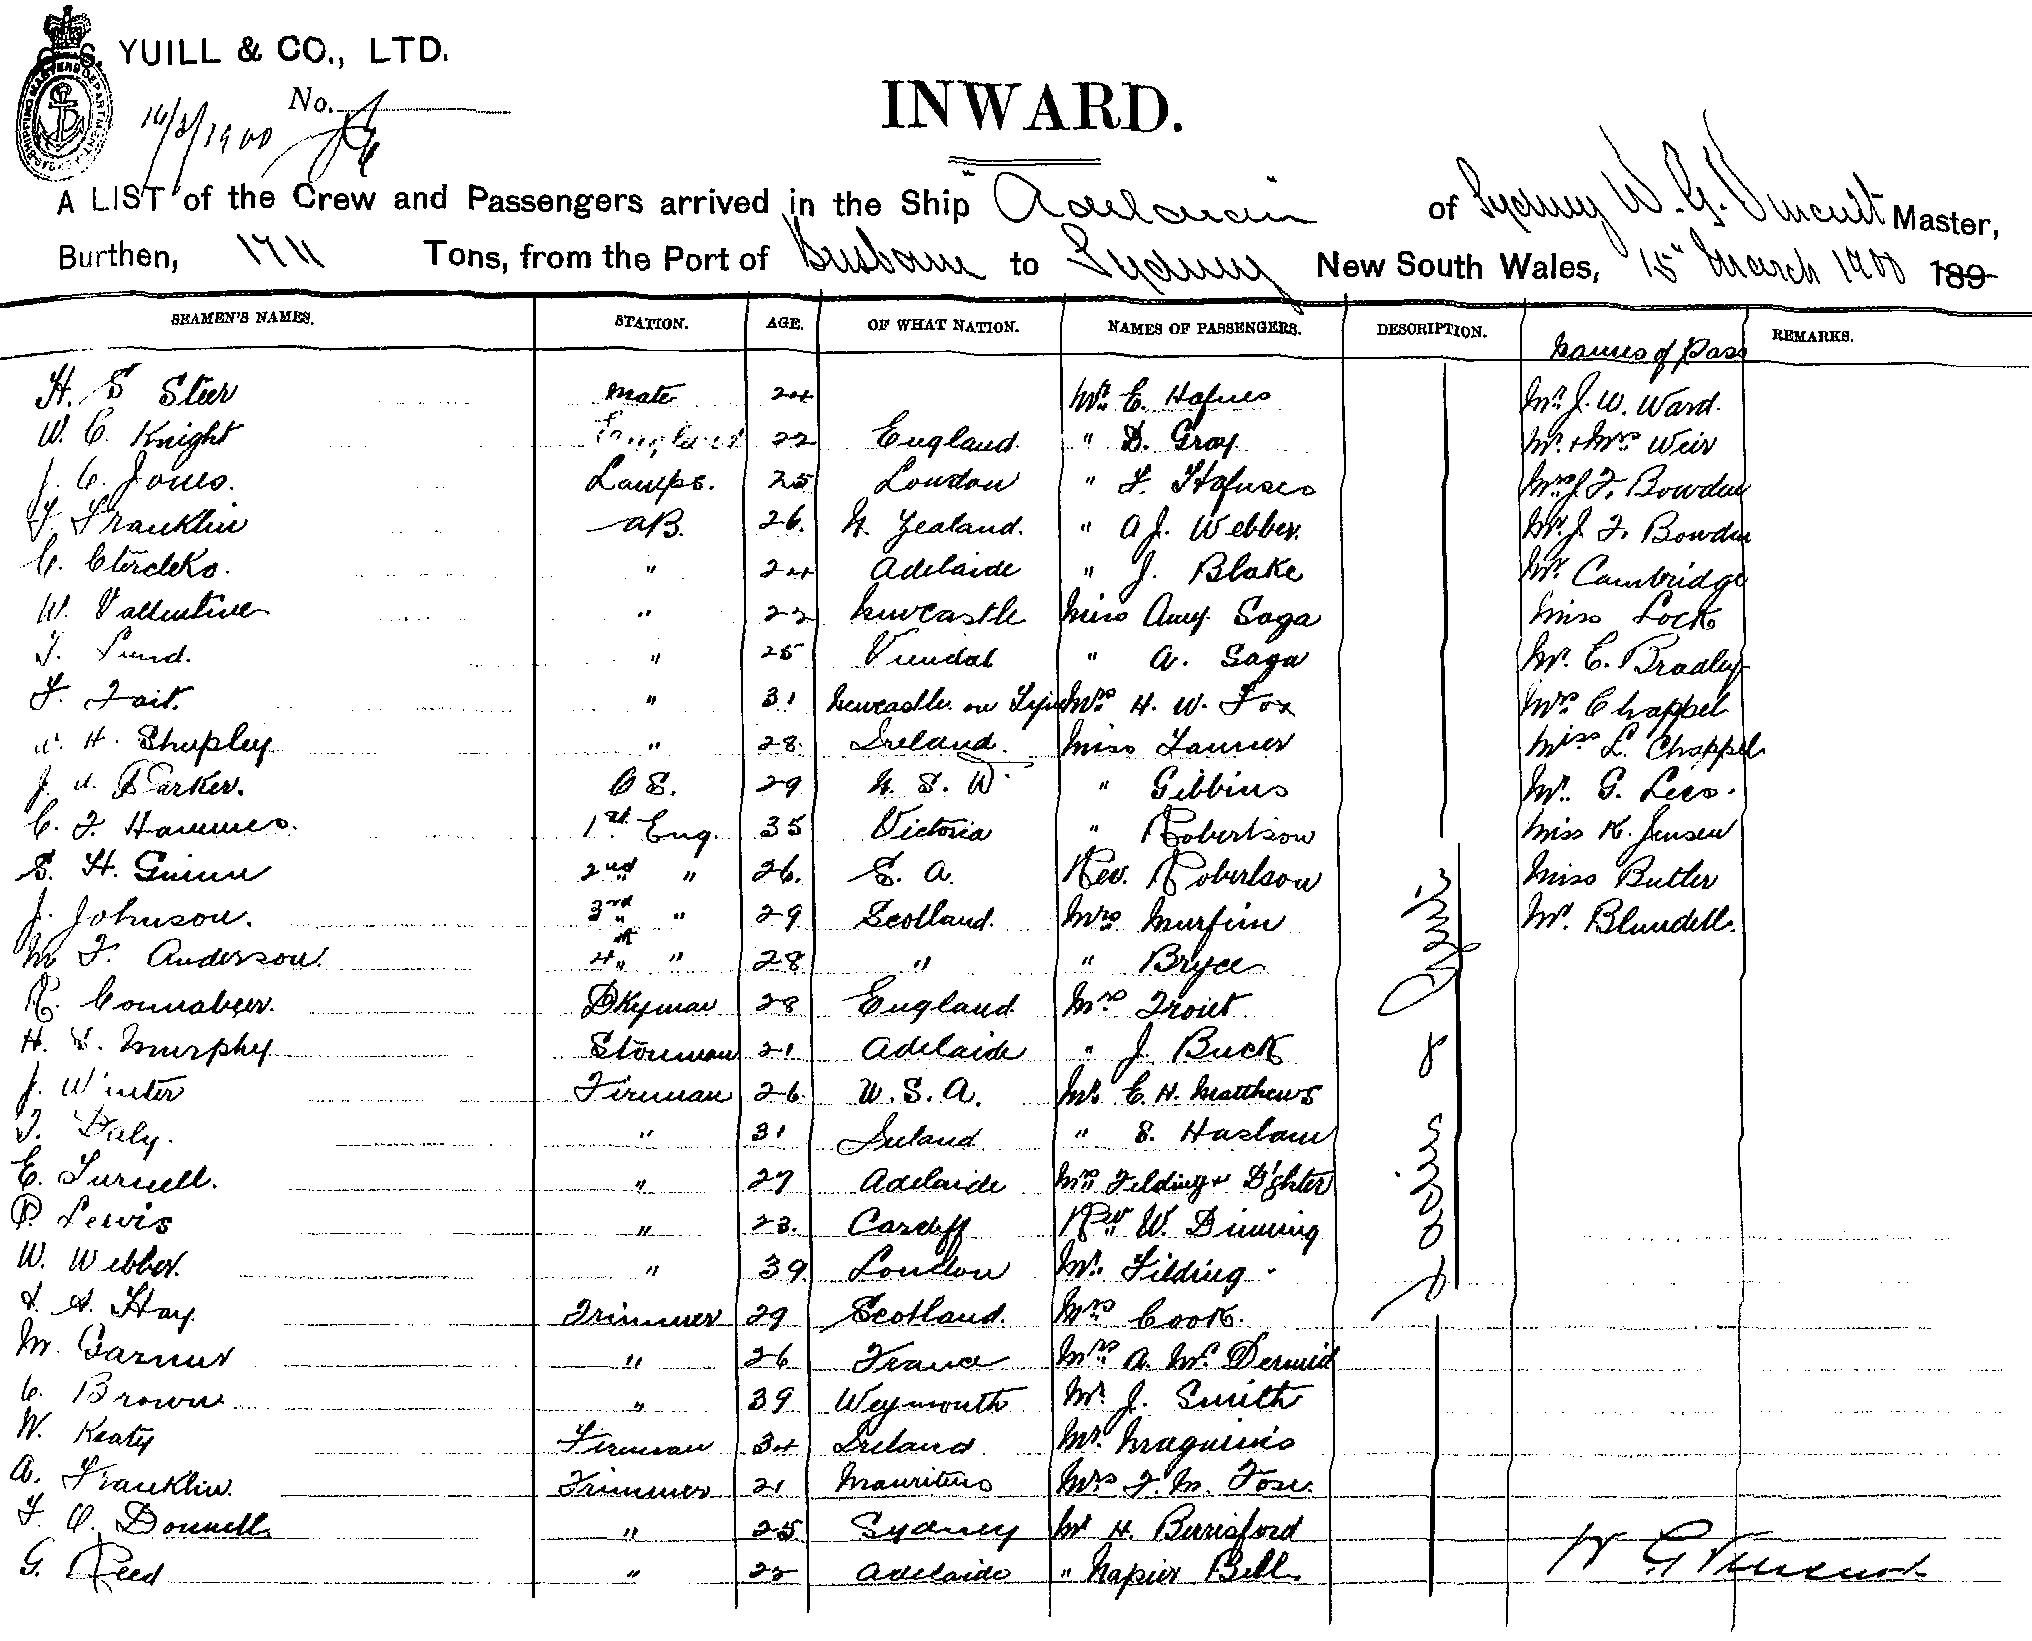 YUILL & CO., LTD.
No.
INWARD.
A LIST of the Crew and Passengers arrived in the Ship "Adelaide" of Sydney W. G. Vincent Master,
Burthen, 1711 Tons, from the Port of Brisbane to Sydney New South Wales, 15" March 1900 189
SEAMEN'S NAMES. STATION. AGE. OF WHAT NATION. NAMES OF PASSENGERS. DESCRIPTION. Names of Pass REMARKS.
H. S Steer Mate 24 Mr. E. Mr. J. W. Ward.
W. C. Knight England 22 England " D. Gray Mr. & Mrs Weir
J. C. Jones. Lamps. 25 London " F. Mrs J. F. Bowden
F. Franklin AB. 26. N. Zealand. " A J. Webber. Mr. J. F. Bowden
C. " 24 Adelaide " J. Blake Mr. Cambridge
W. Vallentine " 22 Newcastle Miss Amy Saga Miss Lock
T. Lund. " 25 " A. Saga Mr. E. Bradley
F. Tait. " 31 Newcastle on Tyne Mrs H. W. Fox Mrs Chappel
W. H. Shepley " 28. Ireland. Miss Miss L. Chappel
J. Parker. O S. 29 N. S. W. " Gibbins Mr. G. Lees.
C. F. Hammes. 1st Eng. 35 Victoria " Robertson Miss K. Jensen
S. H. 2nd " 26. S. A. Rev. Robertson Miss Butler
J. Johnson. 3rd " 29 Scotland. Mrs Murfin Mr. Blundell.
M F. Anderson. 4th " 28 " " Bryce
R. Connabeer. Dkyman 28 England Mrs
H. S. Murphy Storeman 21 Adelaide " J. Buck
J. Winter Fireman 26 U. S. A. Mr. E. H. Matthews
T. Daly. " 31 Ireland " S. Haslam
E. Turnell. " 27 Adelaide Mrs Felding & D'ghter
P. Lewis " 23. Cardiff Rev W. Dinning
W. Webber. " 39 London Mr. Filding
A. Hay. Trimmer 29 Scotland. Mrs Cook.
M. Garnier " 26 France Mrs A. McDermid
C. Brown " 39 Weymouth Mr. J. Smith
W. Keaty Fireman 34 Ireland Mr.
A. Franklin. Trimmer 21 Mauritius Mrs F. M.
F. O. Donnell. " 25 Sydney Mr H. Berrisford
G. Reed " 22 Adelaide " Napier Bell
W G Vincent